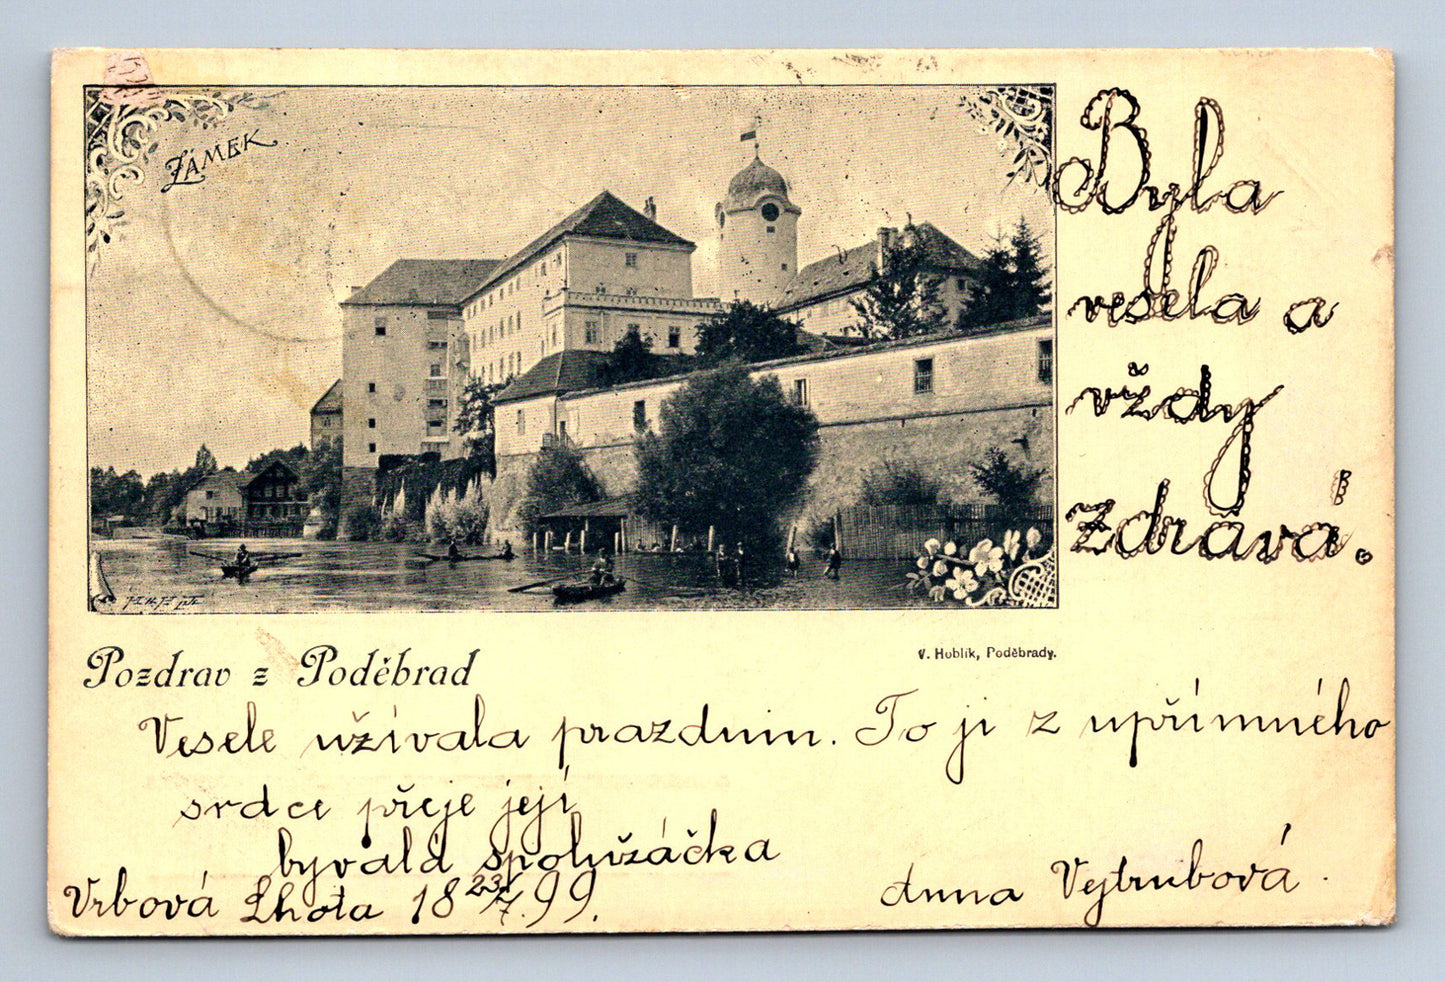 ZÁMEK
Byla
vesela a
vždy
zdráva.
Pozdrav z Poděbrad
V. Hoblík, Poděbrady.
Vesele užívala prazdnin. To ji z upřímného
srdce přeje její
bývalá spolužáčka
Vrbová Lhota 18 23/7. 99.
Anna Vejtrubová.